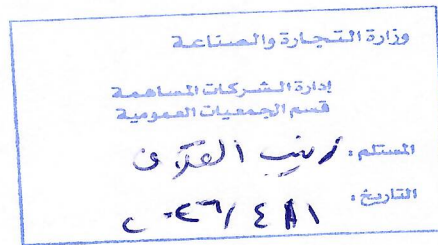 وزارة التجارة والصناعة
إدارة الشركات المساهمة
قسم الجمعيات العمومية
المستلم : زينب
التاريخ :